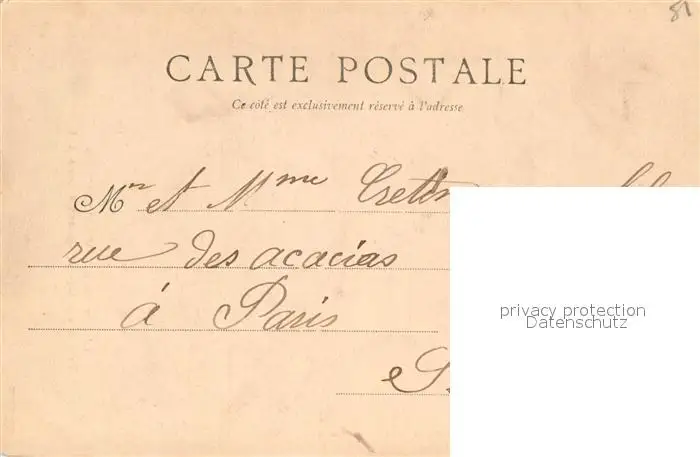 81
CARTE POSTALE
Ce côté est exclusivement réservé à l'adresse
Mr et Mme
rue des acacias
à Paris
privacy protection
Datenschutz